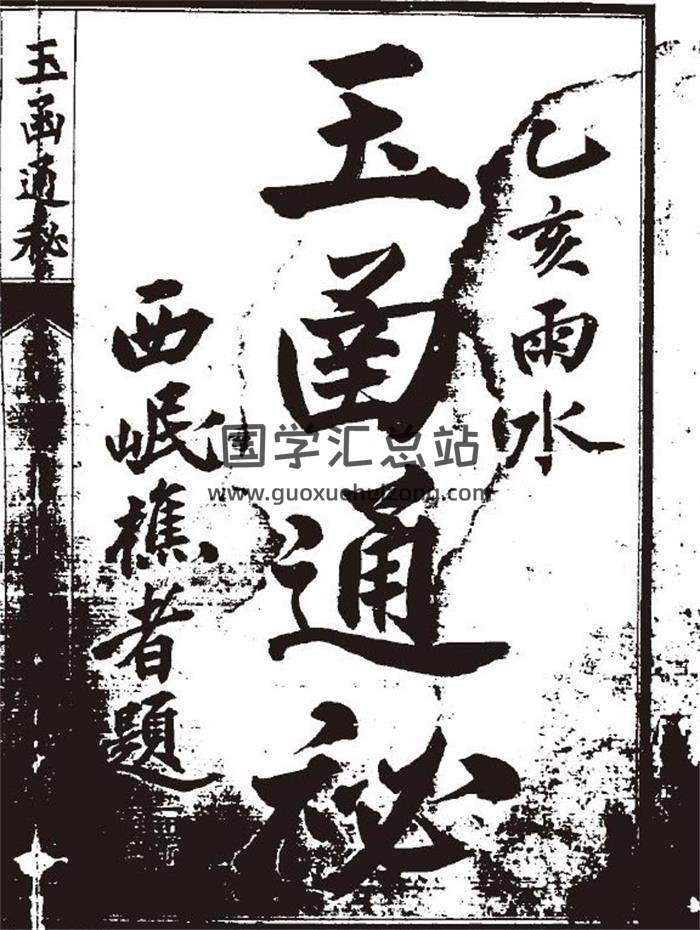 乙亥雨水
玉函通秘
西岷樵者題
玉函通秘
国学汇总站
www.guoxuehuizong.com